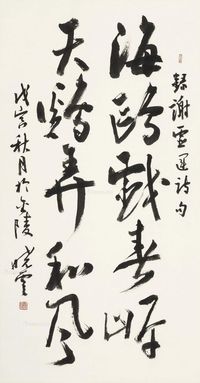 录谢灵运诗句
海鸥戏春岸
天鸡弄和风
戊寅秋月于金陵 晓云